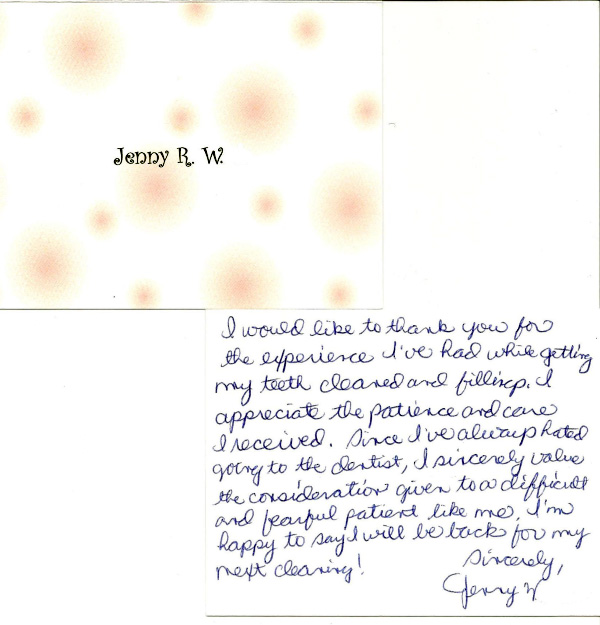 Jenny R. W.
I would like to thank you for
the experience I've had while getting
my teeth cleaned and fillings. I
appreciate the patience and care
I received. Since I've always hated
going to the dentist, I sincerely value
the consideration given to a difficult
and fearful patient like me. I'm
happy to say I will be back for my
next cleaning!
Sincerely,
Jenny W